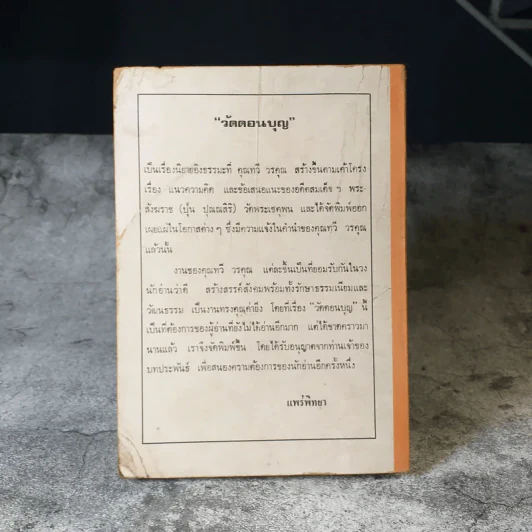 “วัดดอนบุญ”
เป็นเรื่องนิยายอิงธรรมะที่ คุณทวี วรคุณ สร้างขึ้นตามเค้าโครง
เรื่อง แนวความคิด และข้อเสนอแนะของอดีตสมเด็จ ฯ พระ-
สังฆราช (ปุ่น ปุณฺณสิริ) วัดพระเชตุพน และได้จัดพิมพ์ออก
เผยแผ่ในโอกาสต่าง ๆ ซึ่งมีความแจ้งในคำนำของคุณทวี วรคุณ
แล้วนั้น
งานของคุณทวี วรคุณ แต่ละชิ้นเป็นที่ยอมรับกันในวง
นักอ่านว่าดี สร้างสรรค์สังคมพร้อมทั้งรักษาธรรมเนียมและ
วัฒนธรรม เป็นงานทรงคุณค่ายิ่ง โดยที่เรื่อง “วัดดอนบุญ” นี้
เป็นที่ต้องการของผู้อ่านที่ยังไม่ได้อ่านอีกมาก แต่ได้ขาดคราวมา
นานแล้ว เราจึงจัดพิมพ์ขึ้น โดยได้รับอนุญาตจากท่านเจ้าของ
บทประพันธ์ เพื่อสนองความต้องการของนักอ่านอีกครั้งหนึ่ง
แพร่พิทยา